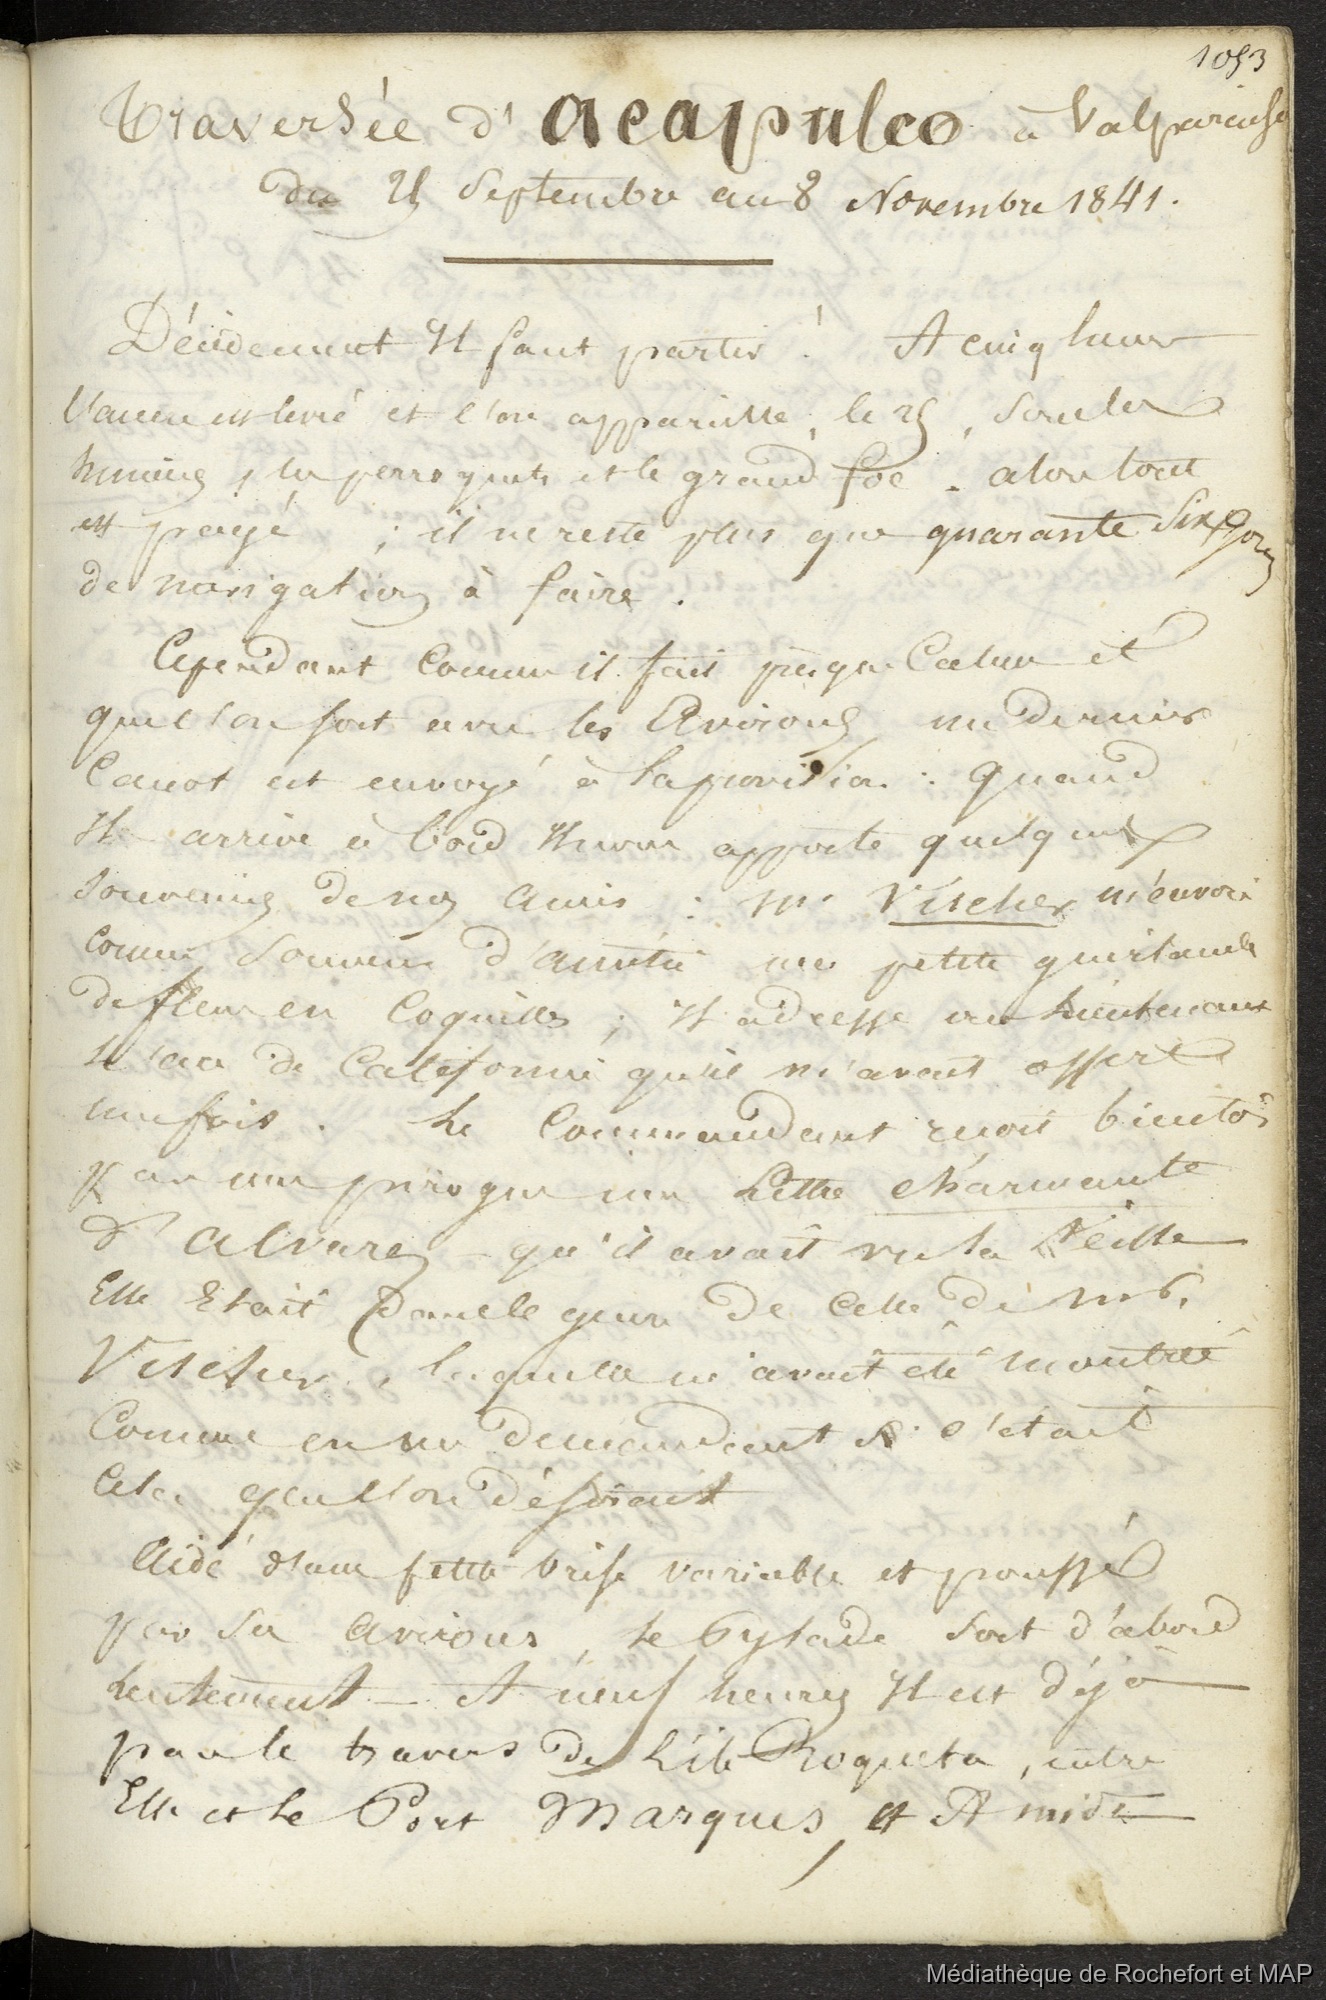 1053
Traversée d'Acapulco à Valparaiso
du 25 Septembre au 8 Novembre 1841.
Décidement Il faut partir ! A cinq heures
l'ancre est levé et l'on appareille, le 25, sous les
huniers, les perroquets et le grand foc. alors tout
est payé ; il ne reste plus que quarante six jours
de navigation à faire.
Cependant comme il fait presque Calme et
que l'on sort avec les Avirons un dernier
Canot est envoyé à la provision : quand
Il arrive à bord Il nous apporte quelques
souvenirs de nos amis : Mr Vischer m'envoie
comme souvenir d'amitié une petite guirlande
de fleur en Coquilles ; Il adresse au lieutenant
le sac de Californie qu'il m'avait offert
une fois. Le Commandant reçoit bientôt
par une pirogue une lettre charmante
d'Alvarez qu'il avait vu la Veille
Elle Etait dans le genre de Celle de Mr.
Vischer, laquelle m'avait été montrée
Comme en me demandant si c'était
Cela que l'on désirait
Aidé d'une petite brise variable et poussé
par ses avirons, le Pylade sort d'abord
lentement — A neuf heures Il est déjà
par le travers de l'ile Roqueta, entre
Elle et le Port Marques, et A midi
Médiathèque de Rochefort et MAP